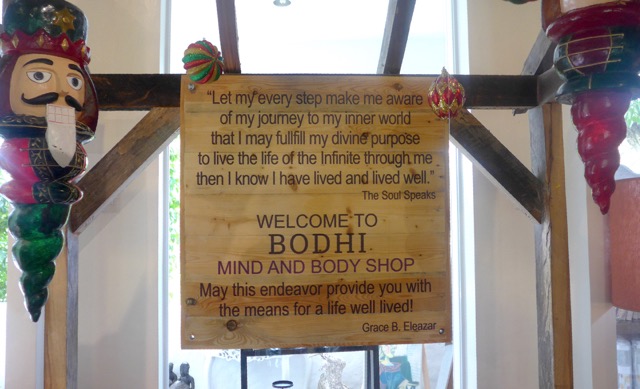 “Let my every step make me aware
of my journey to my inner world
that I may fullfill my divine purpose
to live the life of the Infinite through me
then I know I have lived and lived well.”
The Soul Speaks
WELCOME TO
BODHI
MIND AND BODY SHOP
May this endeavor provide you with
the means for a life well lived!
Grace B. Eleazar